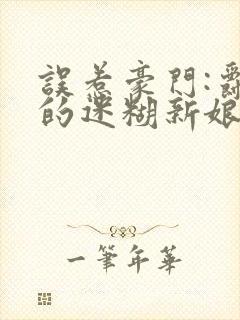 誤惹豪門:
的迷糊新娘
一筆年華